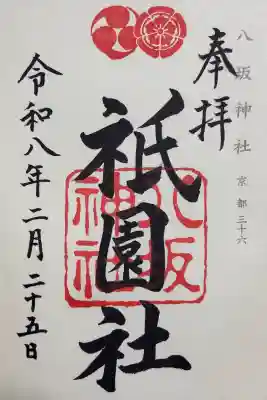 八坂神社 京都三十六
奉拝
祇園社
八坂神社
令和八年二月二十五日